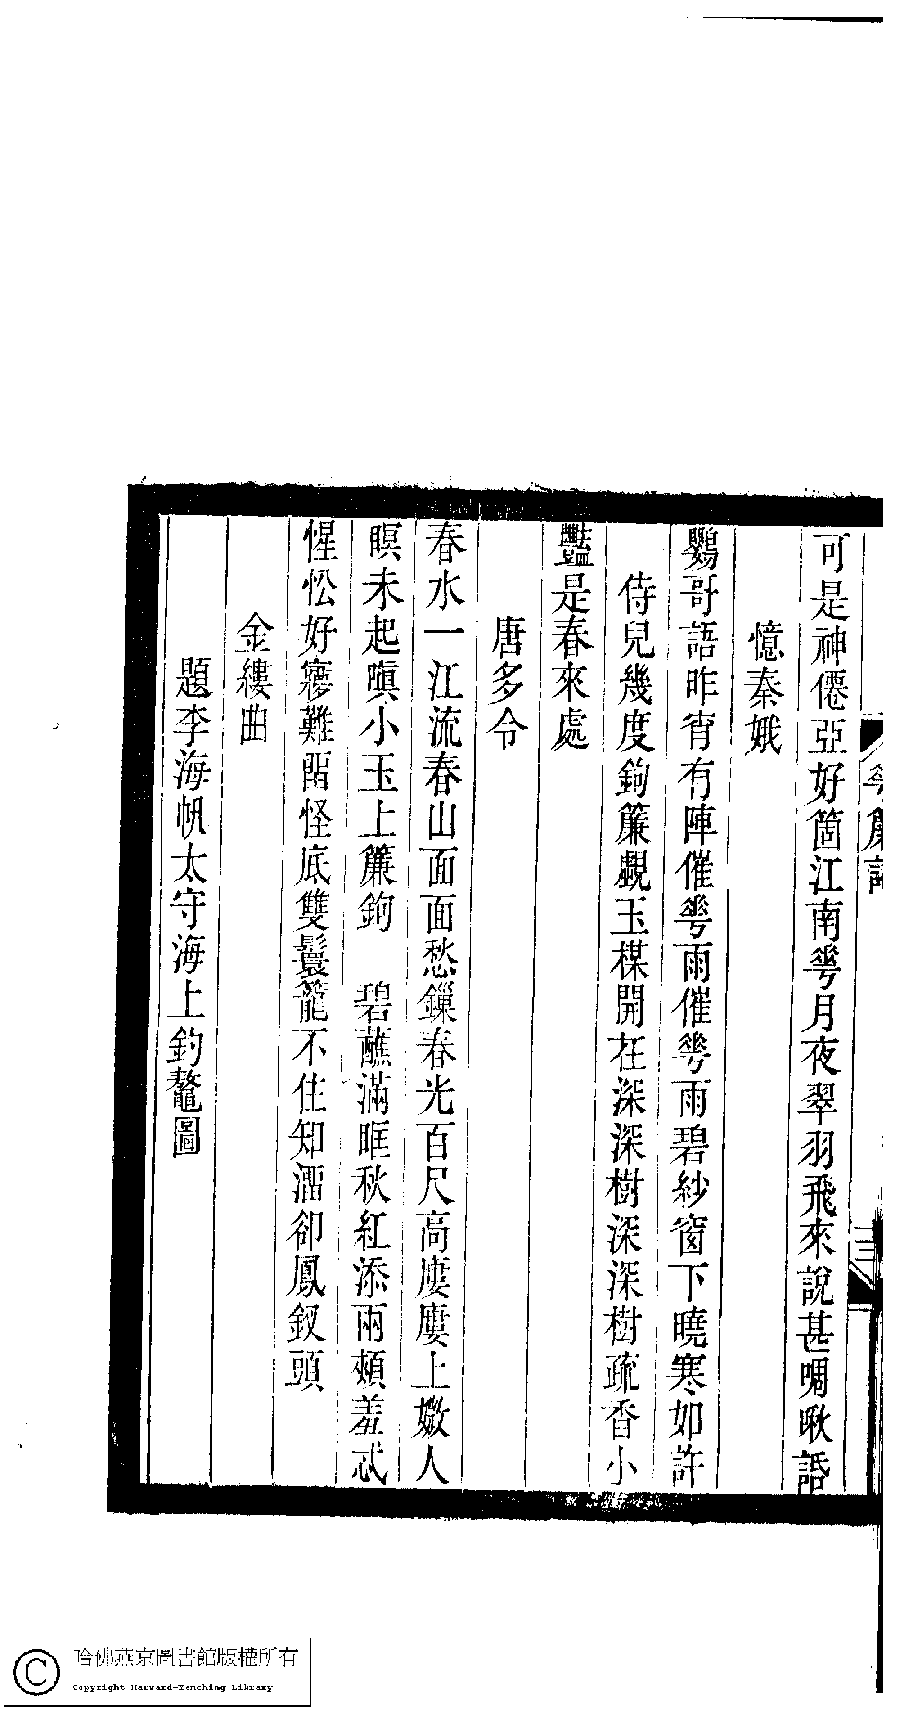 可是神僊亞好箇江南蕚月夜翠羽飛來說甚啁啾語
憶秦娥
鸚哥語昨宵有陣催蕚雨催蕚雨碧紗窗下曉寒如許
侍兒幾度鉤簾覷玉楳開在深深樹深深樹疏香小
豔是春來處
唐多令
春水一江流春山面面愁鏁春光百尺高廔廔上嬓人
瞑未起嗔小玉上簾鉤　碧蘸滿眶秋紅添兩頰羞忒
惺忪好寢難㽞怪底雙鬟籠不住知溜卻鳳釵頭
金縷曲
題李海帆太守海上釣鼇圖
三
哈佛燕京圖書館版權所有
Copyright Harvard-Yenching Library